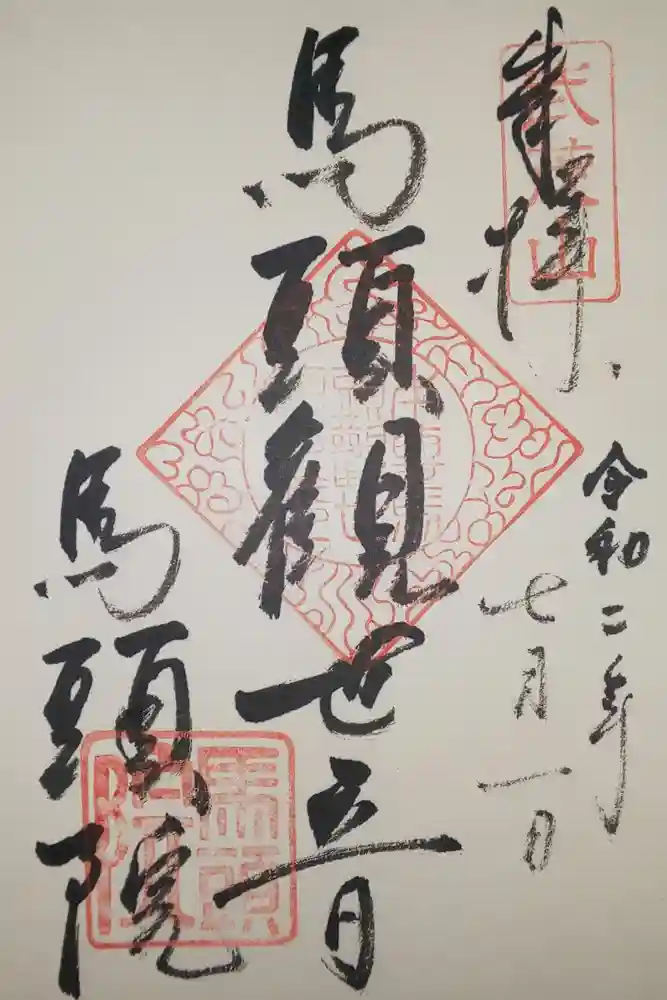 奉拝
武茂山
令和二年
七月一日
馬頭観世音
馬頭院
馬頭院